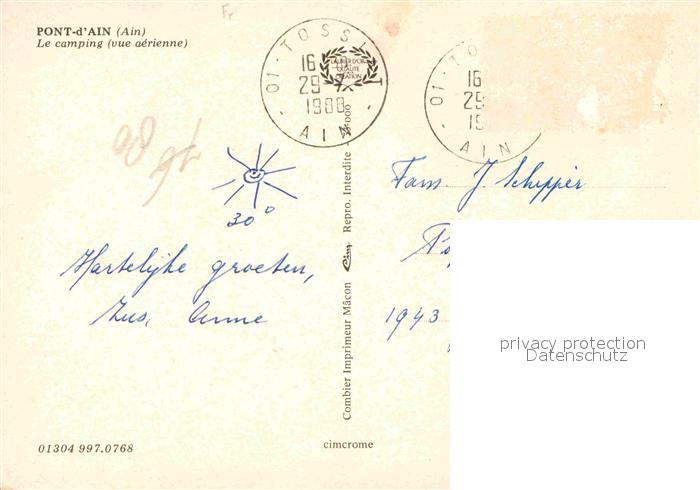 Fr
PONT-d'AIN (Ain)
Le camping (vue aérienne)
01 - TOSSIAT
16
29 - 7
1988
AIN
LAURIER D'OR
QUALITÉ
CRÉATION
01 - TO
16
29
19
AIN
30°
Hartelijke groeten,
Zus, Anne
Combier Imprimeur Mâcon Cim Repro. Interdite - 000
Fam J. Schipper
1943
privacy protection
Datenschutz
01304 997.0768
cimcrome